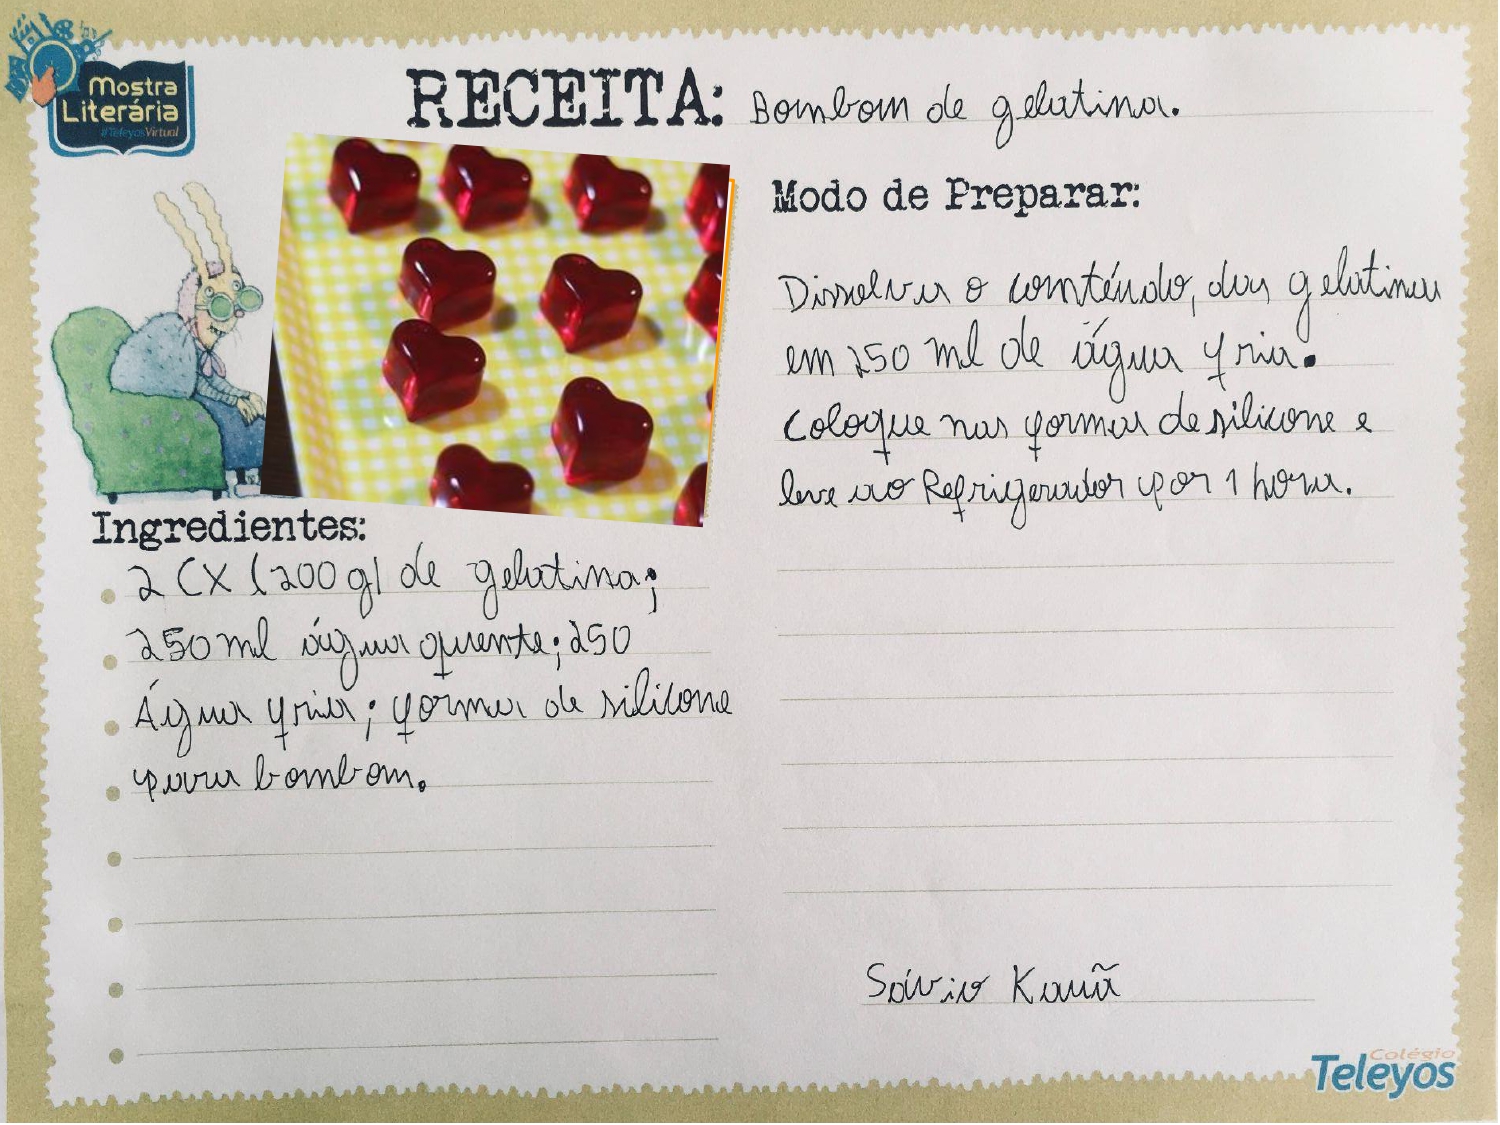 Mostra
Literária
#TeleyosVirtual
RECEITA: Bombom de gelatina.
Ingredientes:
2 CX (200g) de gelatina;
250 ml água quente; 250
Água fria; forma de silicone
para bombom.
Modo de Preparar:
Dissolva o contéudo, das gelatinas
em 250 ml de água fria.
Coloque nas formas de silicone e
leve ao Refrigerador por 1 hora.
Sávio Kauã
Colégio
Teleyos